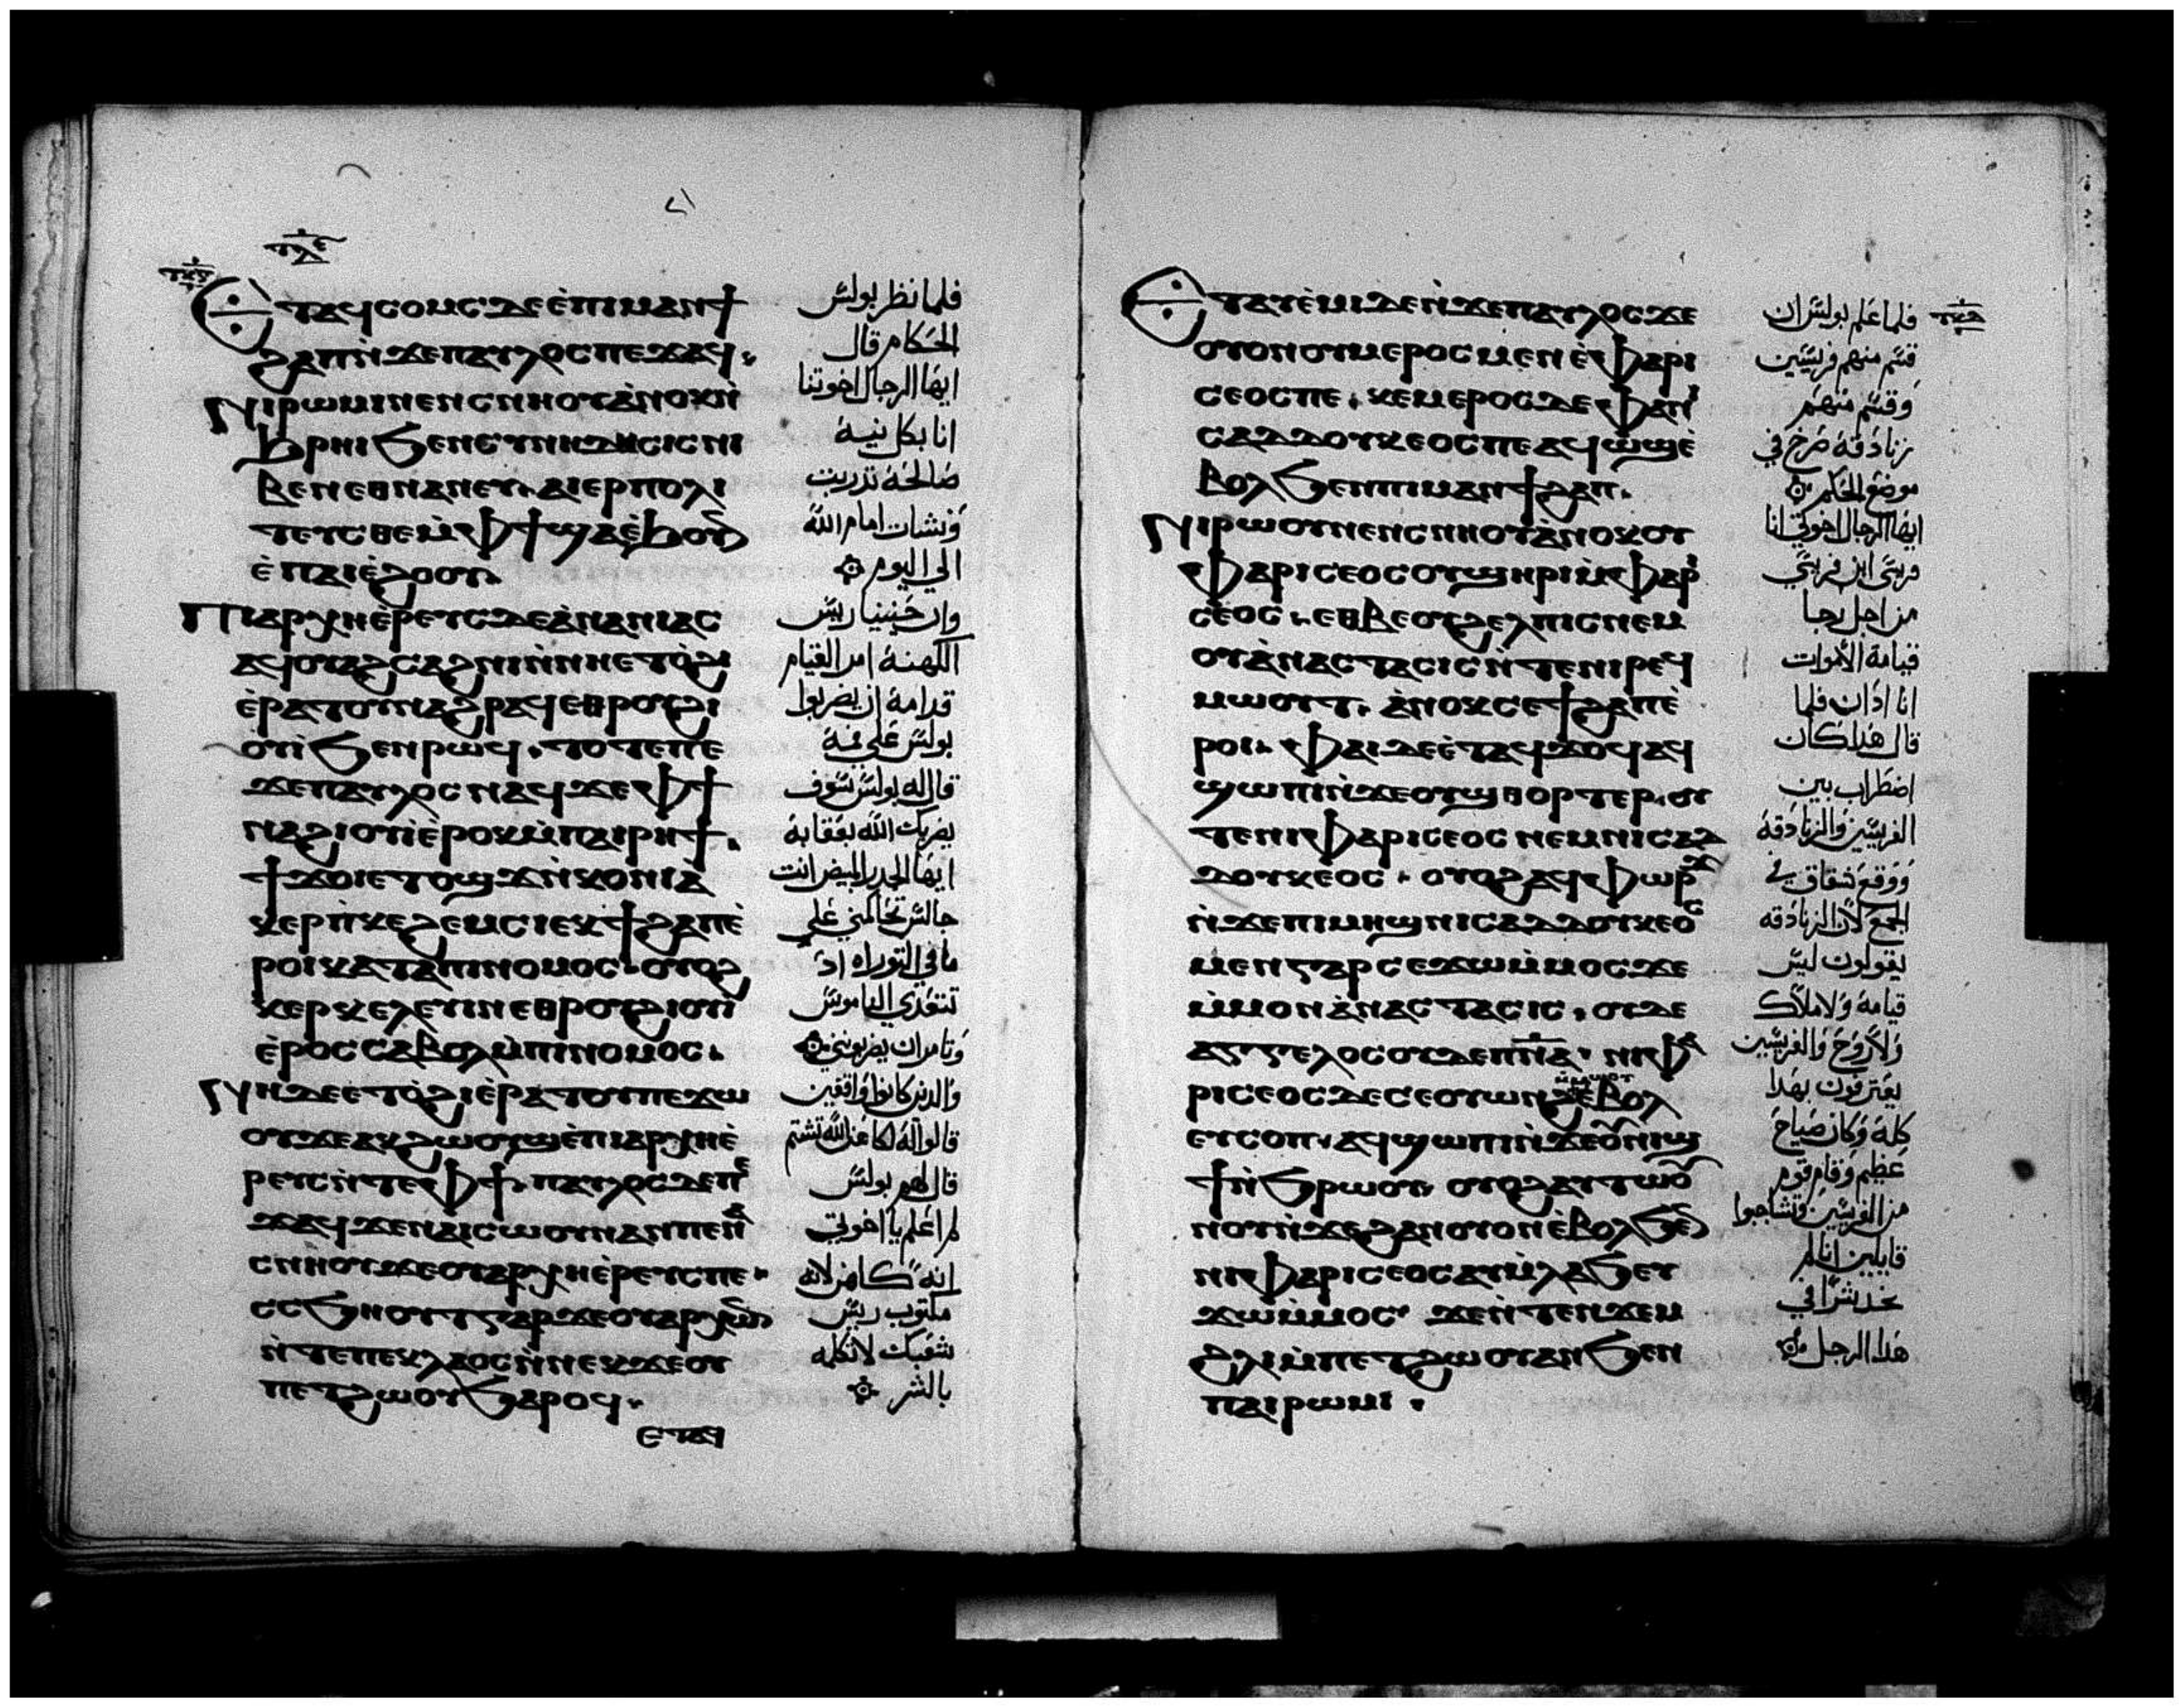 ⲉⲧⲁϥⲥⲟⲙⲥ ⲇⲉ ⲉ̀ⲡⲓⲙⲁⲛϯ
ϩⲁⲡ ⲛ̀ϫⲉ ⲡⲁⲩⲗⲟⲥ ⲡⲉϫⲁϥ
ⲛⲓⲣⲱⲙⲓ ⲛⲉⲛⲥⲛⲏⲟⲩ ⲁ̀ⲛⲟⲕ ⲛ̀
ϧⲣⲏⲓ ϧⲉⲛ ⲥⲩⲛⲏⲇⲏⲥⲓⲥ ⲛⲓ
ⲃⲉⲛ ⲉⲑⲛⲁⲛⲉⲩ ⲁⲓⲉⲣⲡⲟⲗⲓ
ⲧⲉⲩⲥⲑⲉ ⲙ̀ⲫϯ ϣⲁ ⲉ̀ϧⲟⲩⲛ
ⲉ̀ ⲡⲁⲓⲉ̀ϩⲟⲟⲩ
ⲡⲓⲁⲣⲭⲏⲉ̀ⲣⲉⲩⲥ ⲇⲉ ⲁ̀ⲛⲁⲛⲓⲁⲥ
ⲁϥⲟⲩⲁϩⲥⲁϩⲛⲓ ⲛ̀ⲛⲏ ⲉⲧⲟ̀ϩⲓ
ⲉ̀ⲣⲁⲧⲟⲩ ⲛⲁϩⲣⲁϥ ⲉⲑⲣⲟⲩϩⲓ
ⲟⲩⲓ̀ ϧⲉⲛ ⲣⲱϥ ⲧⲟⲧⲉ ⲡⲉ
ϫⲉ ⲡⲁⲩⲗⲟⲥ ⲛⲁϥ ϫⲉ ⲫϯ
ⲛⲁϩⲓⲟⲩⲓ̀ ⲉ̀ⲣⲟⲕ ⲙ̀ⲡⲁⲓⲣⲏϯ
ϯϫⲟⲓ ⲉⲧⲟϣϫ ⲛ̀ⲕⲟⲛⲓⲁ̀
ⲭⲉⲣⲡ̀ⲕⲉϩⲉⲙⲥⲓ ⲉⲕϯϩⲁⲡ ⲉ̀
ⲣⲟⲓ ⲕⲁⲧⲁ ⲡⲓⲛⲟⲙⲟⲥ ⲟⲩⲟϩ
ⲭⲉⲣⲕⲉⲗⲉⲩⲓⲛ ⲉⲑⲣⲟⲩϩⲓⲟⲩⲓ̀
ⲉ̀ⲣⲟⲥ ⲥⲁⲃⲟⲗ ⲙ̀ⲡⲓⲛⲟⲙⲟⲥ
ⲛⲏ ⲇⲉ ⲉⲧⲟ̀ϩⲓ ⲉ̀ⲣⲁⲧⲟⲩ ⲡⲉϫⲱ
ⲟⲩ ϫⲉ ⲁⲕϩⲱⲟⲩϣ ⲉ̀ⲡⲓⲁⲣⲭⲏⲉ̀
ⲣⲉⲩⲥ ⲛ̀ⲧⲉ ⲫϯ ⲡⲁⲩⲗⲟⲥ ⲇⲉ ⲡⲉ
ϫⲁϥ ϫⲉ ⲛⲁⲓⲥⲱⲟⲩⲛ ⲁⲛ ⲡⲉ ⲛⲁ
ⲥⲛⲏⲟⲩ ϫⲉ ⲟⲩⲁⲣⲭⲏⲉ̀ⲣⲉⲩⲥ ⲡⲉ
ⲥⲥϧⲏⲟⲩⲧ ⲅⲁⲣ ϫⲉ ⲟⲩⲁⲣⲭⲱⲛ
ⲛ̀ⲧⲉ ⲡⲉⲕⲗⲁⲟⲥ ⲛ̀ⲛⲉⲕϫⲉ ⲟⲩ
ⲡⲉⲧϩⲱⲟⲩ ϧⲁⲣⲟϥ
ⲉⲧⲁⲩ
فلما نظر بولس
الحكام قال
ايها الرجال اخوتنا
انا بكل نية
صالحة تدربت
ونشات امام الله
الي اليوم
وان حنينيا ريس
الكهنة امر القيام
قدامه ان يضربوا
بولس علي فمه
قال له بولس سوف
يضربك الله بعقابه
ايها الجدر المبيض انت
جالس تحاكمني علي
ما في التوراه اذ
تتعدي الناموس
وتامر ان يضربوني
والدين كانوا واقفين
قالوا له لكاهن الله تشتم
قال لهم بولس
لم اعلم يا اخوتي
انه كاهن لانه
مكتوب ريس
شعبك لا تكلمه
بالشر
ⲉⲧⲁⲩⲉ̀ⲙⲓ ⲇⲉ ⲛ̀ϫⲉ ⲡⲁⲩⲗⲟⲥ ϫⲉ
ⲟⲩⲟⲛ ⲟⲩⲙⲉⲣⲟⲥ ⲙⲉⲛ ⲉ̀ⲫⲁⲣⲓ
ⲥⲉⲟⲥ ⲡⲉ ⲕⲉⲙⲉⲣⲟⲥ ⲇⲉ ⲫⲁ ⲛⲓ
ⲥⲁⲇⲇⲟⲩⲕⲉⲟⲥ ⲡⲉ ⲁϥⲱϣ ⲉ̀
ⲃⲟⲗ ϧⲉⲛ ⲡⲓⲙⲁⲛϯϩⲁⲡ
ⲛⲓⲣⲱⲟⲩ ⲛⲉⲛⲥⲛⲏⲟⲩ ⲁ̀ⲛⲟⲕ ⲟⲩ
ⲫⲁⲣⲓⲥⲉⲟⲥ ⲟⲩϣⲏⲣⲓ ⲙ̀ⲫⲁⲣⲓ
ⲥⲉⲟⲥ ⲉⲑⲃⲉ ⲟⲩϩⲉⲗⲡⲓⲥ ⲛⲉⲙ
ⲟⲩⲁ̀ⲛⲁⲥⲧⲁⲥⲓⲥ ⲛ̀ⲧⲉ ⲛⲓⲣⲉϥ
ⲙⲱⲟⲩⲧ ⲁ̀ⲛⲟⲕ ⲥⲉϯϩⲁⲡ ⲉ̀
ⲣⲟⲓ ⲫⲁⲓ ⲇⲉ ⲉ̀ⲧⲁϥϫⲟϥ ⲁϥ
ϣⲱⲡⲓ ⲛ̀ϫⲉ ⲟⲩϣⲑⲟⲣⲧⲉⲣ ⲟⲩ
ⲧⲉ ⲛⲓⲫⲁⲣⲓⲥⲉⲟⲥ ⲛⲉⲙ ⲛⲓⲥⲁⲇ
ⲇⲟⲩⲕⲉⲟⲥ ⲟⲩⲟϩ ⲁϥⲫⲱⲣϫ
ⲛ̀ϫⲉ ⲡⲓⲙⲏϣ ⲛⲓⲥⲁⲇⲇⲟⲩⲕⲉⲟⲥ
ⲙⲉⲛ ⲅⲁⲣ ⲥⲉϫⲱ ⲙ̀ⲙⲟⲥ ϫⲉ
ⲙ̀ⲙⲟⲛ ⲁ̀ⲛⲁⲥⲧⲁⲥⲓⲥ ⲟⲩⲇⲉ
ⲁⲅⲅⲉⲗⲟⲥ ⲟⲩⲇⲉ ⲡⲛ̅ⲁ̅ ⲛⲓⲫⲁ
ⲣⲓⲥⲉⲟⲥ ⲇⲉ ⲥⲉⲟⲩⲱⲛϩ ⲙ̀ⲙⲱⲟⲩ ⲉ̀ⲃⲟⲗ
ⲉⲩⲥⲟⲡ ⲁϥϣⲱⲡⲓ ⲛ̀ϫⲉ ⲟⲩⲛⲓϣ
ϯ ⲛ̀ϧⲣⲱⲟⲩ ⲟⲩⲟϩ ⲁⲩⲧⲱⲟⲩ
ⲛⲟⲩ ⲛ̀ϫⲉ ϩⲁⲛⲟⲩⲟⲛ ⲉ̀ⲃⲟⲗ ϧⲉⲛ
ⲛⲓⲫⲁⲣⲓⲥⲉⲟⲥ ⲁⲩⲙ̀ⲗⲁϧ ⲉⲩ
ϫⲱ ⲙ̀ⲙⲟⲥ ϫⲉ ⲛ̀ⲧⲉⲛϫⲉⲙ
ϩⲗⲓ ⲙ̀ⲡⲉⲧϩⲱⲟⲩ ⲁⲛ ϧⲉⲛ
ⲡⲁⲓⲣⲱⲙⲓ
فلما علم بولس ان
قسم منهم فريسيين
وقسم منهم
زنادقة صرخ في
موضع الحكم
ايها الرجال اخوتي انا
فريسي ابن فريسي
من اجل رجا
قيامة الأموات
انا ادان فلما
قال هدا كان
اضطراب بين
الفريسيين والزنادقة
ووقع شقاق في
الجمع لان الزنادقه
يقولون ليس
قيامة ولا ملاك
ولا روح والفريسيين
يعترفون بهدا
كله وكان صياح
عظيم وقام قوم
من الفريسيين وتشاجبوا
قايلين اننا لم
نجد شرا في
هدا الرجل